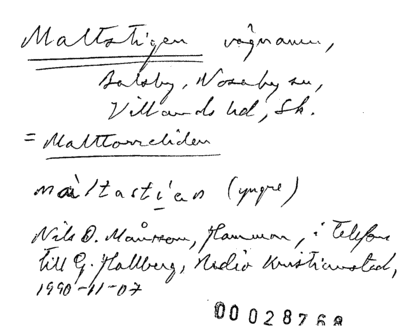 Maltstigen vägnamn,
Balsby, Nosaby sn,
Villands hd, Sk.
= Malttorreliden
(yngre)
Nils O. Månsson, Hammar, i telefon
till G. Hallberg, Radio Kristianstad,
1990-11-07
00028768